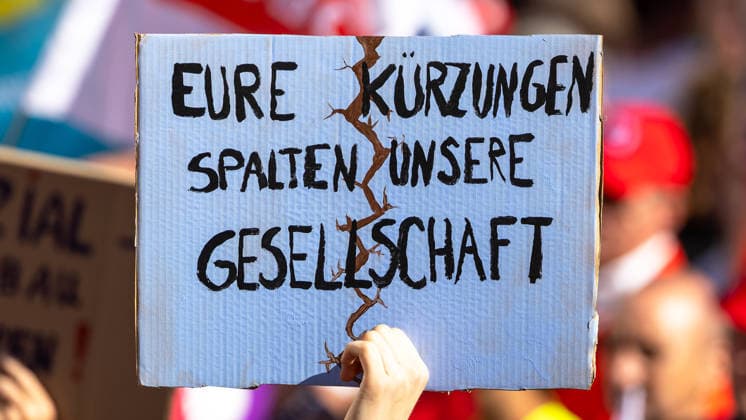 EURE KÜRZUNGEN
SPALTEN UNSERE
GESELLSCHAFT